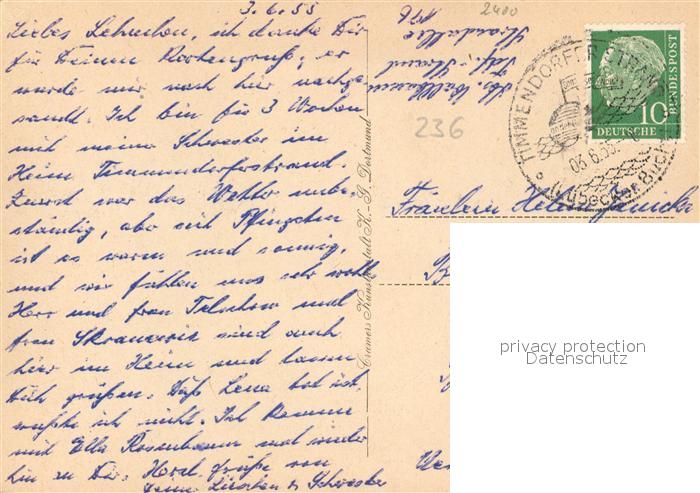 3.6.55
2400
Liebes Lehnchen, ich danke Dir
für Deinen Kartengruß, er
wurde mir nach hier nachge-
sandt. Ich bin für 3 Wochen
mit meine Schwester im
Heim Timmendorferstrand.
Zuerst war das Wetter unbe-
ständig, aber seit Pfingsten
ist es warm und sonnig,
und wir fühlen uns sehr wohl
Herr und Frau und
Frau sind auch
hier im Heim und lassen
Dich grüßen. Daß Lena tot ist
wußte ich nicht. Ich komme
mit Ella Rosenbaum mal wieder
hin zu Dir. Herzl. Grüße von
Deine u Schwester
Strandallee
236
Cramers Kunstanstalt K.-G. Dortmund
TIMMENDORFER STRAND
03.6.55
(Lübecker Bucht)
DEUTSCHE
BUNDESPOST
10
Fräulein Helene
privacy protection
Datenschutz